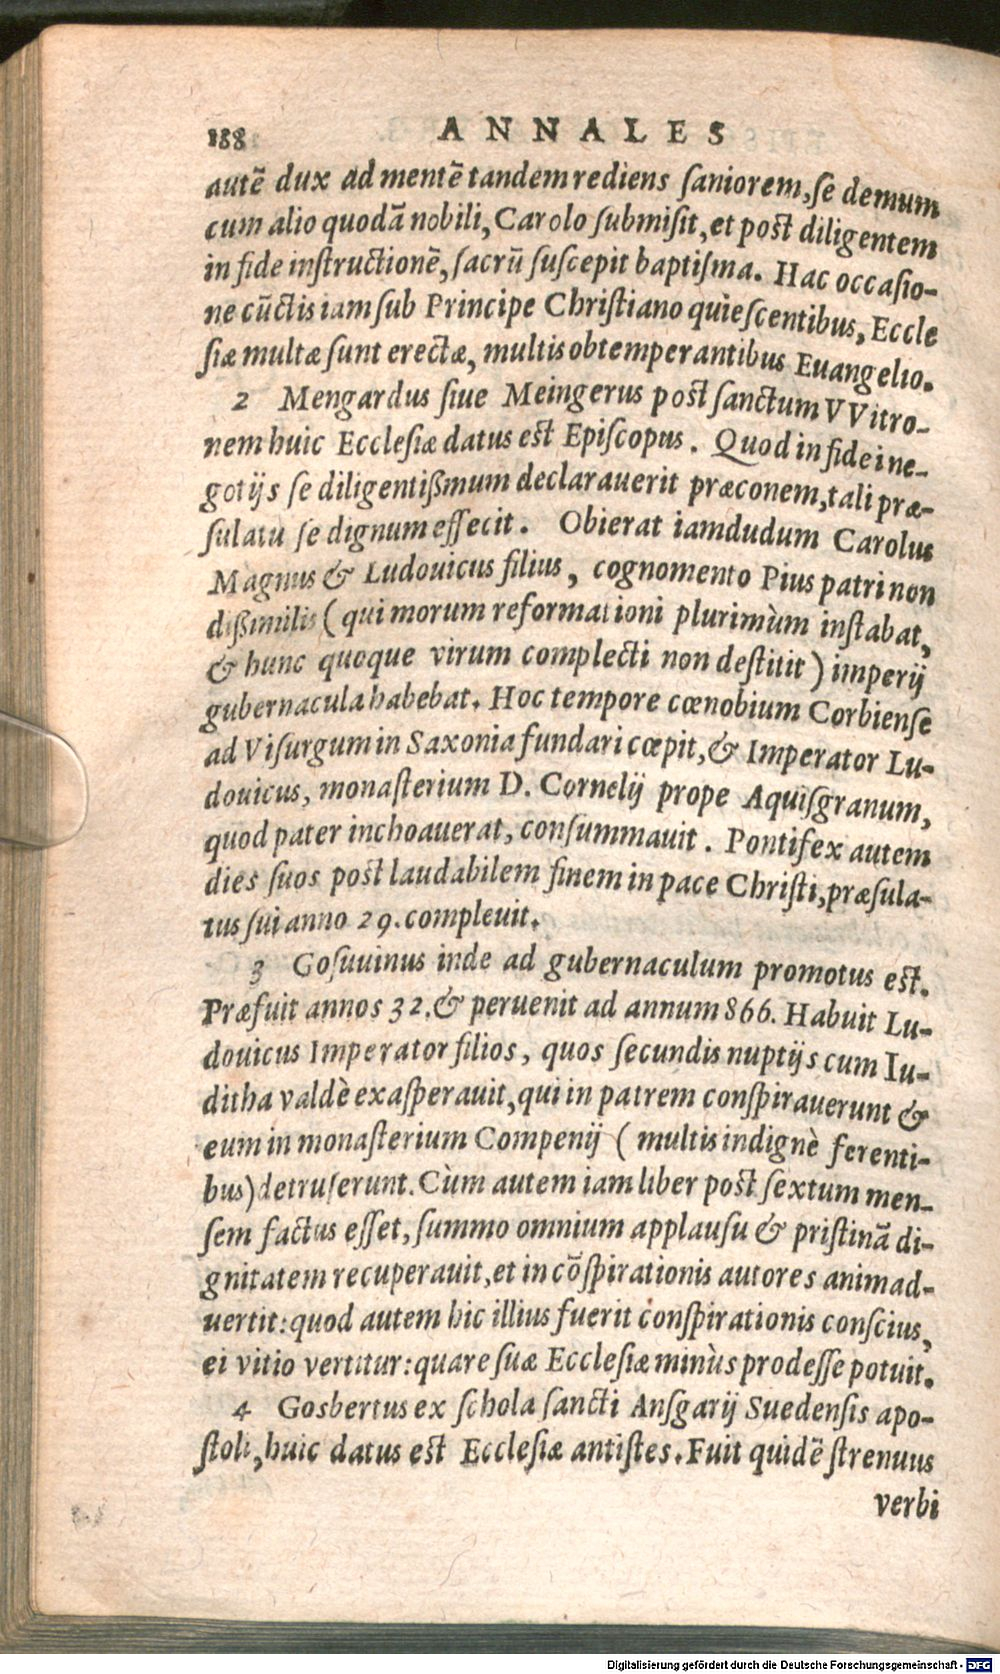 188 ANNALES
autē dux ad mentē tandem rediens ſaniorem, ſe demum
cum alio quodā nobili, Carolo ſubmiſit, et poſt diligentem
in fide inſtructionē, ſacrū ſuſcepit baptiſma. Hac occaſio-
ne cūctis iam ſub Principe Chriſtiano quieſcentibus, Eccle
ſiæ multæ ſunt erectæ, multis obtemperantibus Euangelio.
2 Mengardus ſiue Meingerus poſt ſanctum VVitro-
nem huic Eccleſiæ datus eſt Epiſcopus. Quod in fidei ne-
gotijs ſe diligentißmum declarauerit præconem, tali præ-
ſulatu ſe dignum effecit. Obierat iamdudum Carolus
Magnus & Ludouicus filius, cognomento Pius patri non
dißimilis (qui morum reformationi plurimùm inſtabat,
& hunc quoque virum complecti non deſtitit) imperij
gubernacula habebat. Hoc tempore cœnobium Corbienſe
ad Viſurgum in Saxonia fundari cœpit, & Imperator Lu-
douicus, monaſterium D. Cornelij prope Aquiſgranum,
quod pater inchoauerat, conſummauit. Pontifex autem
dies ſuos poſt laudabilem finem in pace Chriſti, præſula-
tus ſui anno 29. compleuit.
3 Goſuuinus inde ad gubernaculum promotus eſt.
Præfuit annos 32. & peruenit ad annum 866. Habuit Lu-
douicus Imperator filios, quos ſecundis nuptijs cum Iu-
ditha valdè exaſperauit, qui in patrem conſpirauerunt &
eum in monaſterium Compenij (multis indignè ferenti-
bus) detruſerunt. Cùm autem iam liber poſt ſextum men-
ſem factus eſſet, ſummo omnium applauſu & priſtinā di-
gnitatem recuperauit, et in cōſpirationis autores animad-
uertit: quod autem hic illius fuerit conſpirationis conſcius,
ei vitio vertitur: quare ſuæ Eccleſiæ minùs prodeſſe potuit.
4 Gosbertus ex ſchola ſancti Anſgarij Suedenſis apo-
ſtoli, huic datus eſt Eccleſiæ antiſtes. Fuit quidē ſtrenuus
verbi
Digitalisierung gefördert durch die Deutsche Forschungsgemeinschaft - DFG